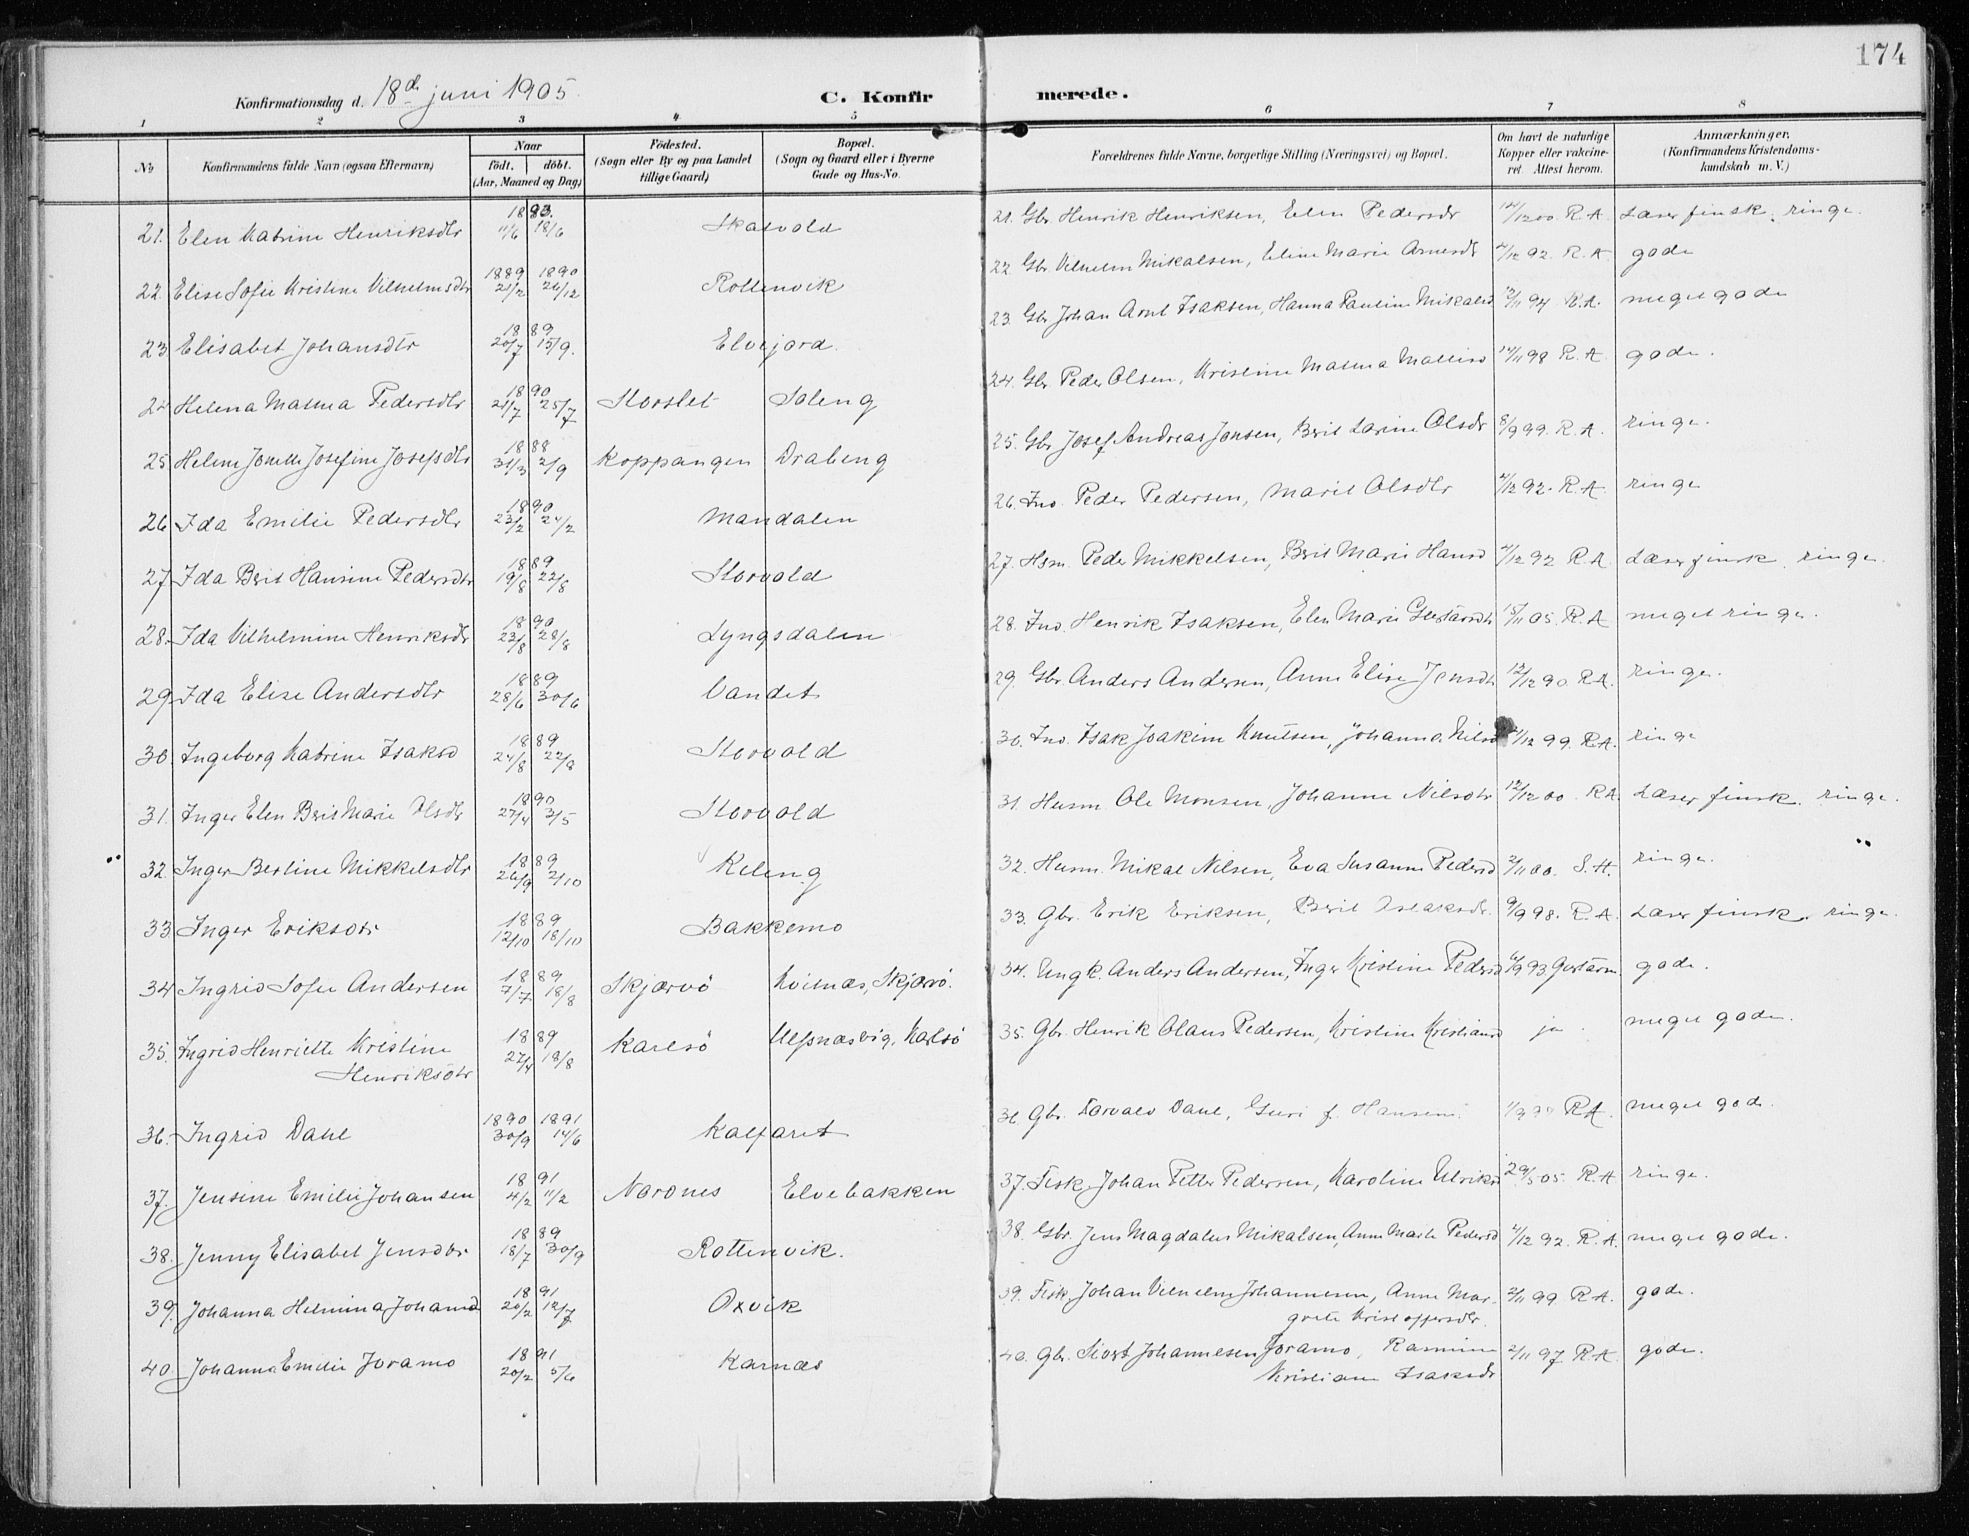 174
Konfirmationsdag d. 18de juni 1905.
C. Konfirmerede.
1 2 3 4 5 6 7 8
No Konfirmandens fulde Navn (ogsaa Efternavn) Naar født. døbt. (Aar, Maaned og Dag) Fødested. (Sogn eller By og paa Landet tillige Gaard) Bopæl. (Sogn og Gaard eller i Byerne Gade og Hus-No. Forældrenes fulde Navne, borgerlige Stilling (Næringsvei) og Bopæl. Om havt de naturlige Kopper eller vakcineret. Attest herom. Anmærkninger. (Konfirmandens Kristendomskundskab m. V.)
21. Elen Katrine Henriksdtr 11/6 18/6 Skatvold 21. Gbr. Henrik Henriksen, Elen Pedersdr 12/12 00. R.A. Læser finsk. ringe.
22. Elise Sofie Kristine Vilhelmsdtr 1889 21/2 1890 26/12 Rottenvik 22. Gbr. Vilhelm Mikalsen, Eline Marie Arnesdr 4/12 92. R.A. gode
23 Elisabet Johansdtr 1889 20/7 15/9. Elvejord. 23. Gbr. Johan Arnt Isaksen, Hanna Pauline Mikalsd 12/11 94 R.A. meget gode
24 Helena Mathea Pedersdtr 1890 21/7 25/7 Storslet Soleng 24. Gbr. Peder Olsen, Kristine 14/11 98 R.A. gode.
25 Helene Josefine Josefsdtr 1888 31/3 2/9 Koppangen Drabeng 25. Gbr. Josef Andreas Jonsen, Berit Larine Olsdr 8/9 99. R.A. ringe.
26 Ida Emilie Pedersdtr 1890 23/2 24/2 Mandalen 26. Ino. Peder Pedersen, Marit Olsdtr 4/12 92. R.A. ringe
27 Ida Berit Hansine Pedersdtr 1889 19/8 22/8 Storvold 27. Hsm. Peder Mikkelsen, Berit Marie Hansd 4/12 92 R.A. Læser finsk. ringe.
28. Ida Vilhelmine Henriksdr 1890 23/8 28/8 Lyngsdalen 28. Ino. Henrik Isaksen, Elen Marie Gustavsdtr 15/11 05. R.A. meget ringe.
29 Ida Elise Andersdtr 1889 28/6 30/6 Vandet 29. Gbr. Anders Andersen, Anne Elise Jensdtr 12/12 90. R.A. ringe.
30 Ingeborg Katrine Isaksd 1889 24/8 22/8 Storvold 30. Ino. Isak Joakim Knutsen, Johanna Nilsd /12 99. R.A. ringe
31. Inger Elen Berit Marie Olsdr 1890 27/4 3/5 Storvold 31. Husm. Ole Monsen, Johanne Nilsdtr 12/12 00. R.A. Læser finsk. ringe.
32. Inger Berline Mikkelsdtr 1889 26/9 2/10 Keleng 32. Husm. Mikal Nilsen, Eva Susanne Pedersd 2/11 00. S.H. ringe.
33 Inger Eriksdtr 1889 12/10 18/10 Bakkemo 33. Gbr. Erik Eriksen, Berit Isaksdr. 9/9 98. R.A. Læser finsk. ringe.
34 Ingrid Sofie Andersen 1889 7/7 18/8 Skjærvö Kvitnæs, Skjærvö. 34. Ungk. Anders Andersen, Inger Kristine Pedersd 93 Gustavsen gode.
35. Ingrid Henriette Kristine 1889 27/4 18/8 Karlsö Ulfsnæsvig, Karlsö 35. Gbr. Henrik Olaus Pedersen, Kristine Kristiansd ja. meget gode.
Henriksdtr
36. Ingrid Dahl 1890 30/9 1891 14/6 Kalfaret 36 Gbr. Torvald Dahl, Guri f. Hansen R.A. meget gode.
37. Jensine Emilie Johansen 1891 4/2 11/2 Nordnes Elvebakken 37. Fisk. Johan Petter Pedersen, Karoline Ulriks 29/5 05. R.A ringe.
38. Jenny Elisabet Jensdtr 1889 18/7 30/9 Rottenvik. 38. Gbr. Jens Magdalus Mikalsen, Anne Marie Pedersd 4/12 92. R.A. meget gode.
39. Johanna Helmina Johansd 1891 20/2 12/7 Oxvik 39. Fisk. Johan Vilhelm Johannesen, Anne Mar- 2/11 99 R.A. gode.
grete Kristoffersdtr.
40 Johanna Emilie Joramo 1891 20/2 5/6 Karnæs 40. Gbr. Sivert Johannesen Joramo, Rasmine 2/11 97 R.A. gode.
Kristiane Isaksdr